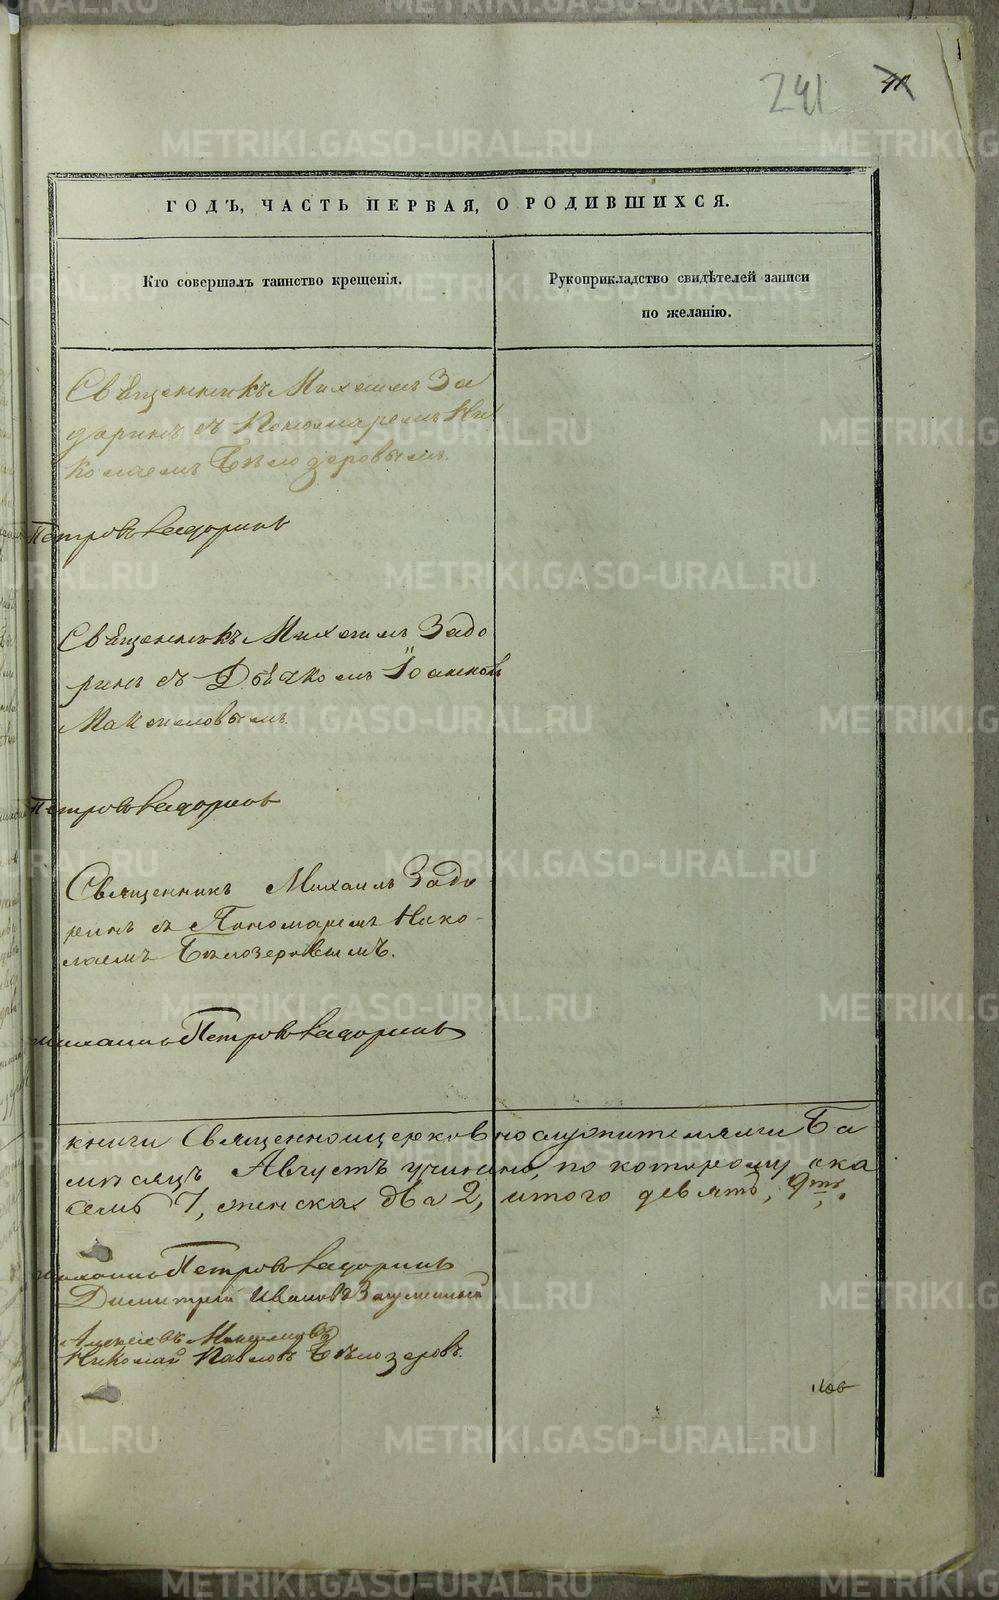 241
ГОДЪ, ЧАСТЬ ПЕРВАЯ, О РОДИВШИХСЯ.
Кто совершалъ таинство крещенія.
Рукоприкладство свидѣтелей записи
по желанію.
Священникъ Михаилъ За
доринъ съ Пономаремъ Ни
колаемъ Бѣлозеровымъ.
Петровъ Задоринъ
Священникъ Михаилъ Задо
ринъ съ Дьячкомъ Іоанномъ
Петровъ Задоринъ
Священникъ Михаилъ Задо
ринъ съ Пономаремъ Нико-
лаемъ Бѣлозеровымъ.
Петровъ Задоринъ
книги Священноцерковнослужителями За
мѣсяцъ Августъ учинено, по которому ока
семь 7, женска два 2, итого девять, 9ть.
Петровъ Задоринъ
Димитрій Ивановъ
Николай Павловъ Бѣлозеровъ.
METRIKI.GASO-URAL.RU